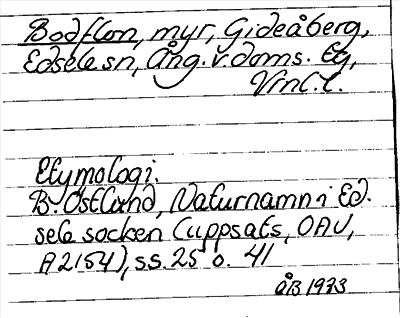 Bodflon, myr, Gideåberg,
Edsele sn, Ång. v. doms. Eg,
Vrnl. l.
Etymologi.
B. Östlund, Naturnamn i Ed.
sele socken (uppsats, OAU,
A2154), ss. 25 o. 41
ÅB 1973